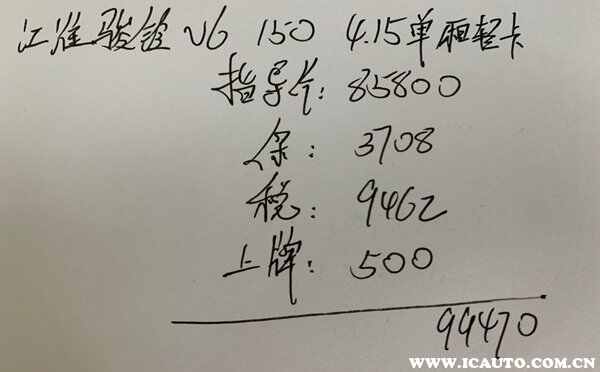 江淮骏铃V6 150 4.15单厢轻卡
指导价: 85800
保: 3708
税: 9462
上牌: 500
99470
WWW.ICAUTO.COM.CN